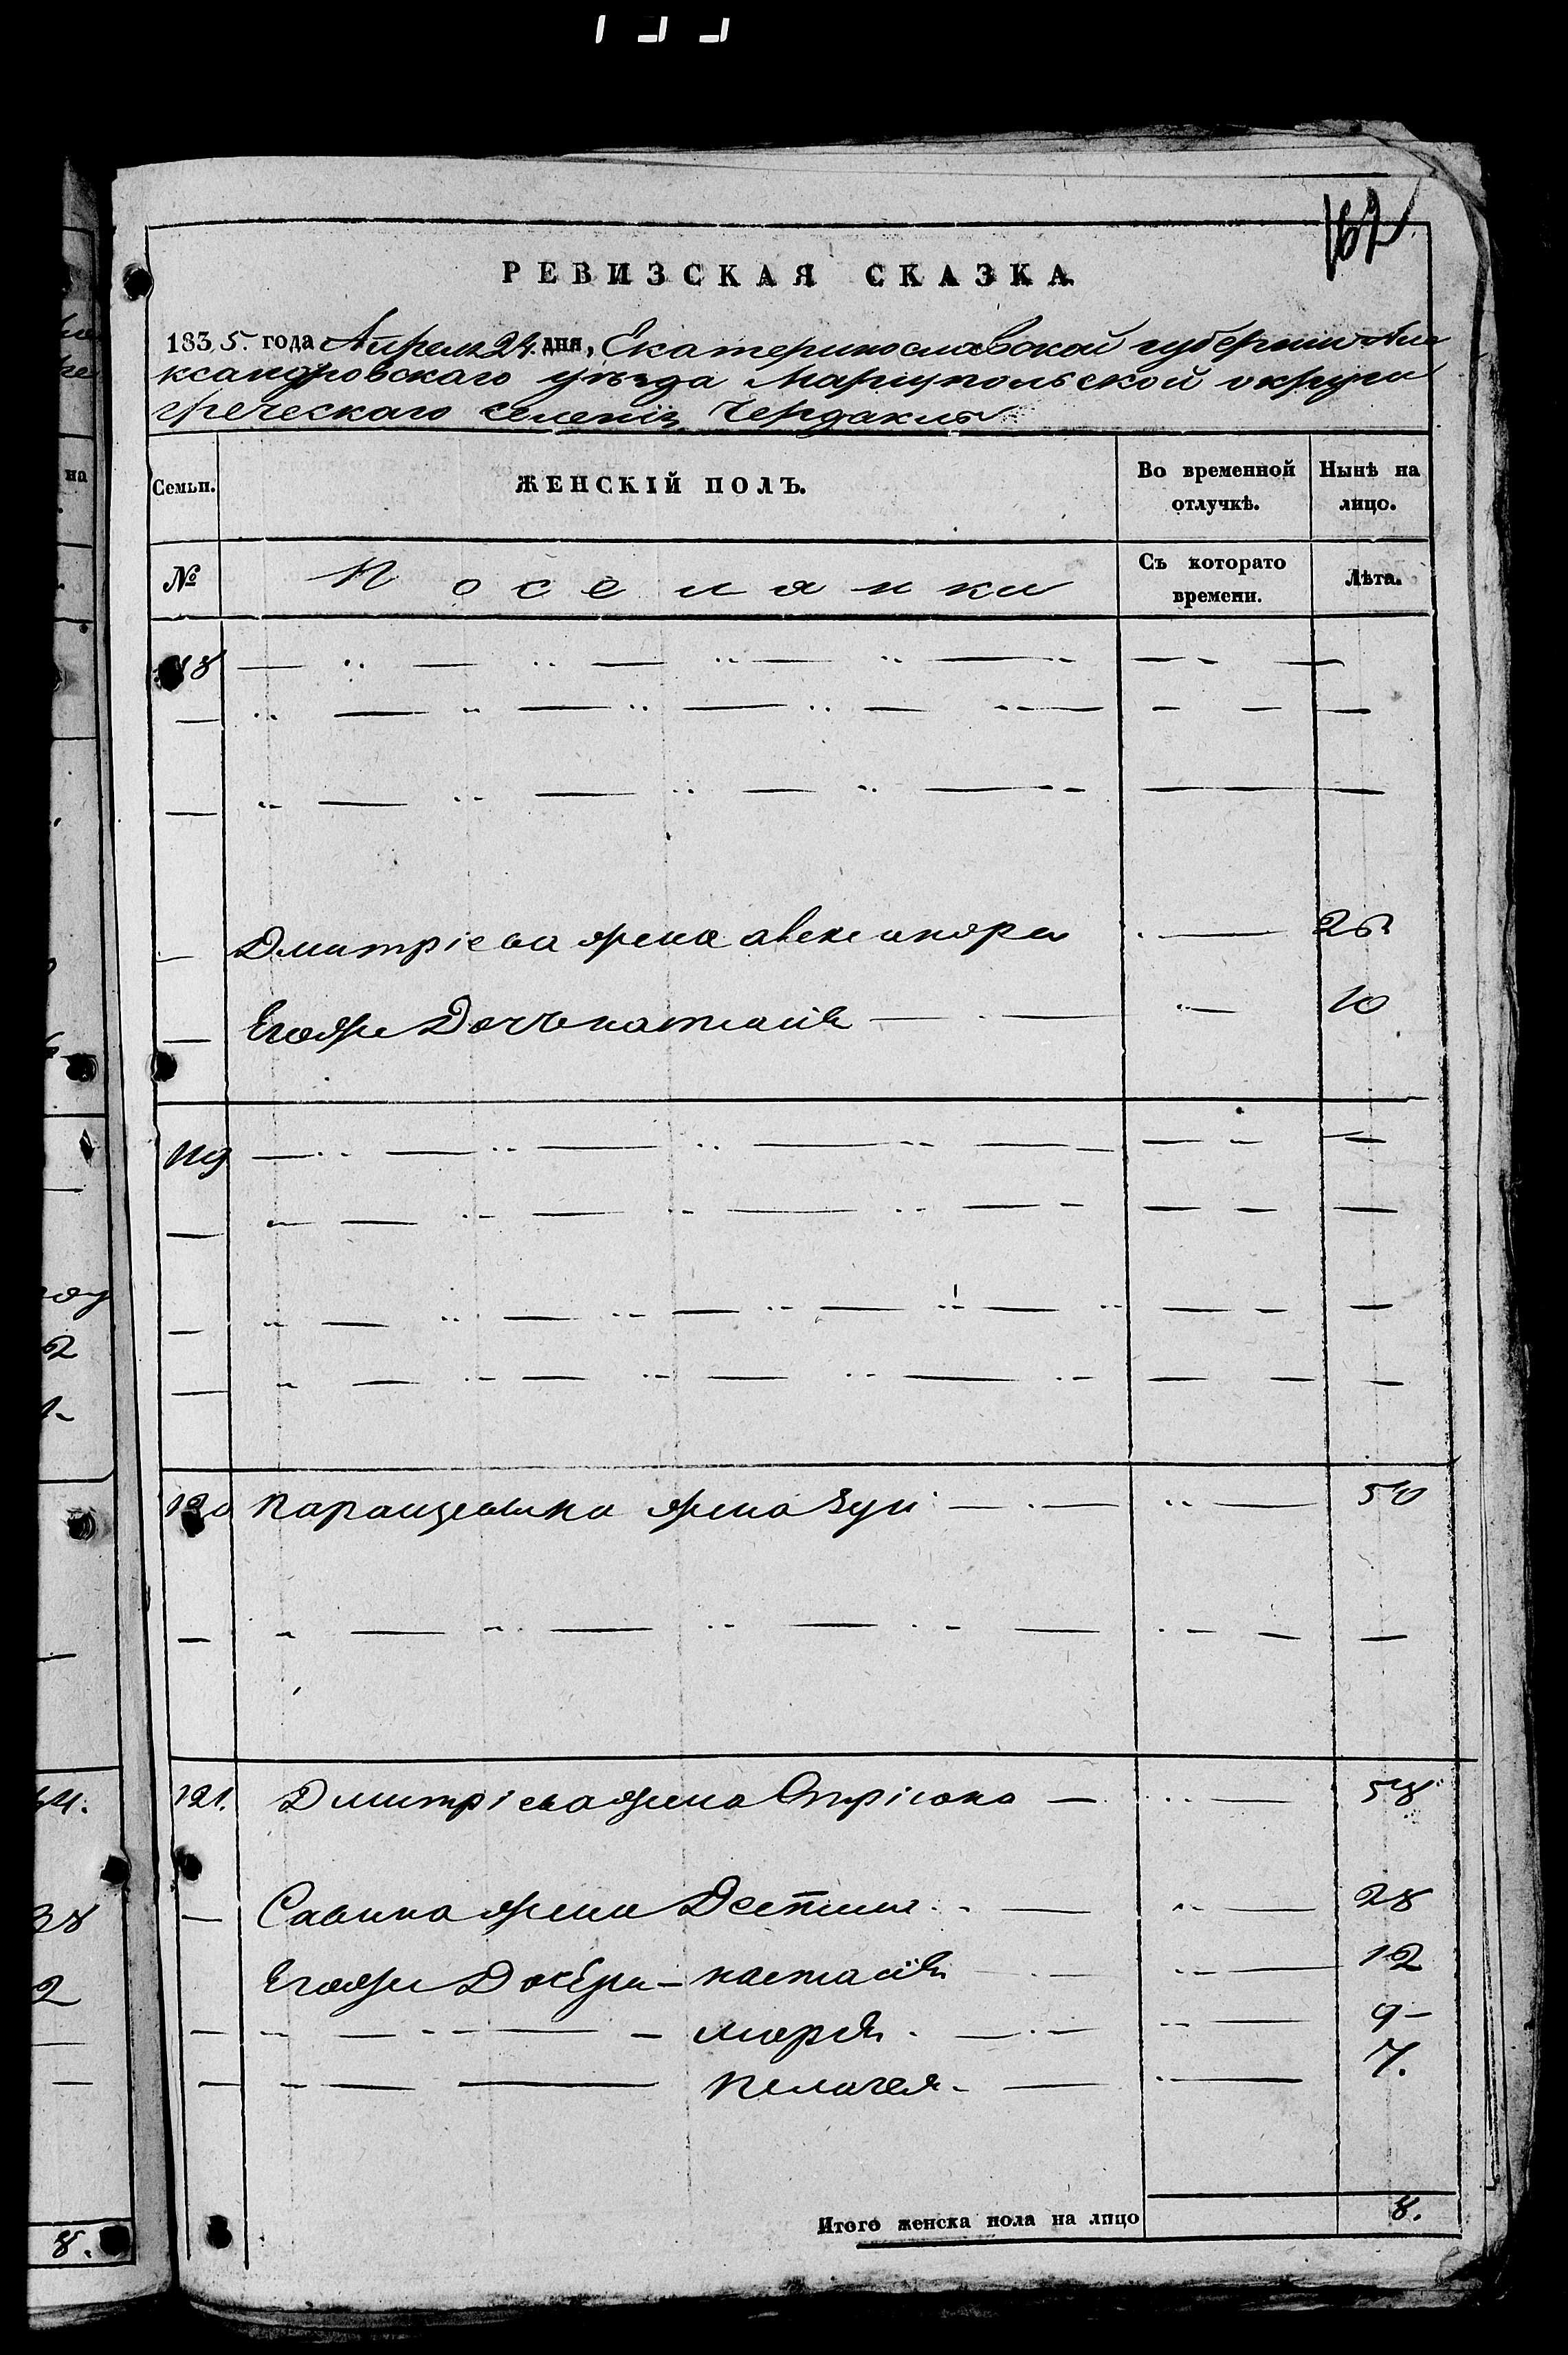 162
РЕВИЗСКАЯ СКАЗКА.
1835. года Апреля 24. дня, Екатеринославской губернии Але
ксандровскаго уѣзда Мариупольской округи
греческаго селенія Чердаклы
Семьи. ЖЕНСКІЙ ПОЛЪ. Во временной отлучкѣ. Нынѣ на лицо.
№ Поселянки Съ которато времени. Лѣта.
118
Дмитріева жена 26
Егоже Дочь настасія 10
119
120 жена Зуи 50
121. Дмитріева жена 58
Савина жена Деспина 28
Егоже Дочери - настасія 12
марія 9
Пелагея 7.
Итого женска пола на лицо 8.
8.